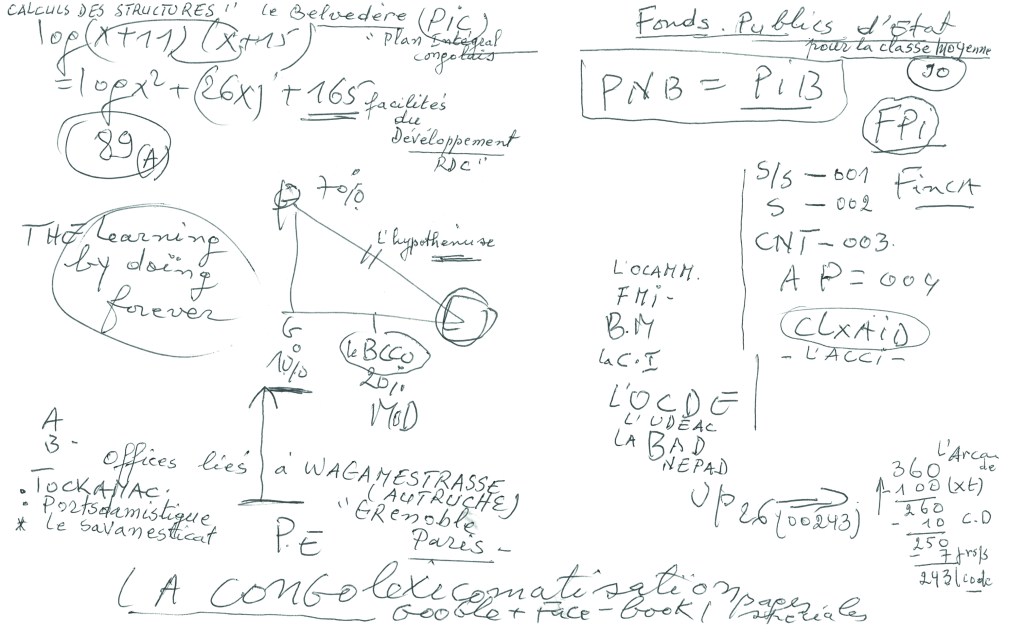 CALCULS DES STRUCTURES" Le Belvedère (PIC)
log(x+11) (x+15)
" Plan Intégral
congolais
= log x² + (26x) + 165
facilités
du
Développement
RDC"
89 (A)
THE Learning
by doing
forever
70%
L'hypothénuse
G
10%
le BCCO
20%
MOD
A
B -
Offices liés à WAGAMESTRASSE
(AUTRUCHE)
. TOCKAMAC.
. Portsdamistique
* Le savanesticat
P.E
"GRenoble
Paris -
Fonds. Publics d'Etat
pour la classe Moyenne
PNB = PIB
FPI
S/S - 001
FINCA
S - 002
CNT - 003.
AP = 004
CLXAID
- L'ACCI -
L'OCAMM.
FMI -
B.M
La C.I
L'OCDE
L'UDEAC
LA BAD
NEPAD
UP26 (00243)
360
- 100 (xt)
260
- 10 C.D
250
- 7
243 (code
LA CONGOLEXICOMATISATION
GOOGLE + FACE-BOOK / pages spéciales